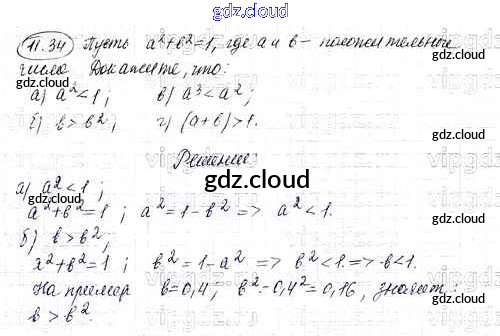 gdz.cloud
11.34 Пусть a²+b²=1, где a и b – положительные
числа. Докажите, что:
а) a²<1; в) a³<a²;
б) b>b²; г) (a+b)>1.
Решение:
gdz.cloud
а) a²<1;
a²+b²=1; a²=1-b² => a²<1.
б) b>b²;
x²+b²=1; b²=1-a² => b²<1.=> b<1.
На пример b=0,4; b²=0,4²=0,16, значит:
b>b².
gdz.cloud